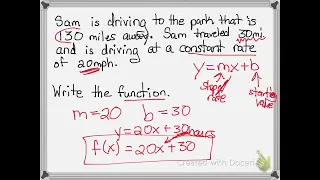 Sam is driving to the park that is
130 miles away. Sam traveled 30mi.
and is driving at a constant rate
of 20mph.
y=mx+b
slope
rate
starting
value
Write the function.
m=20 b=30
y=20x+30
hours
f(x)=20x+30
Created with Doceri